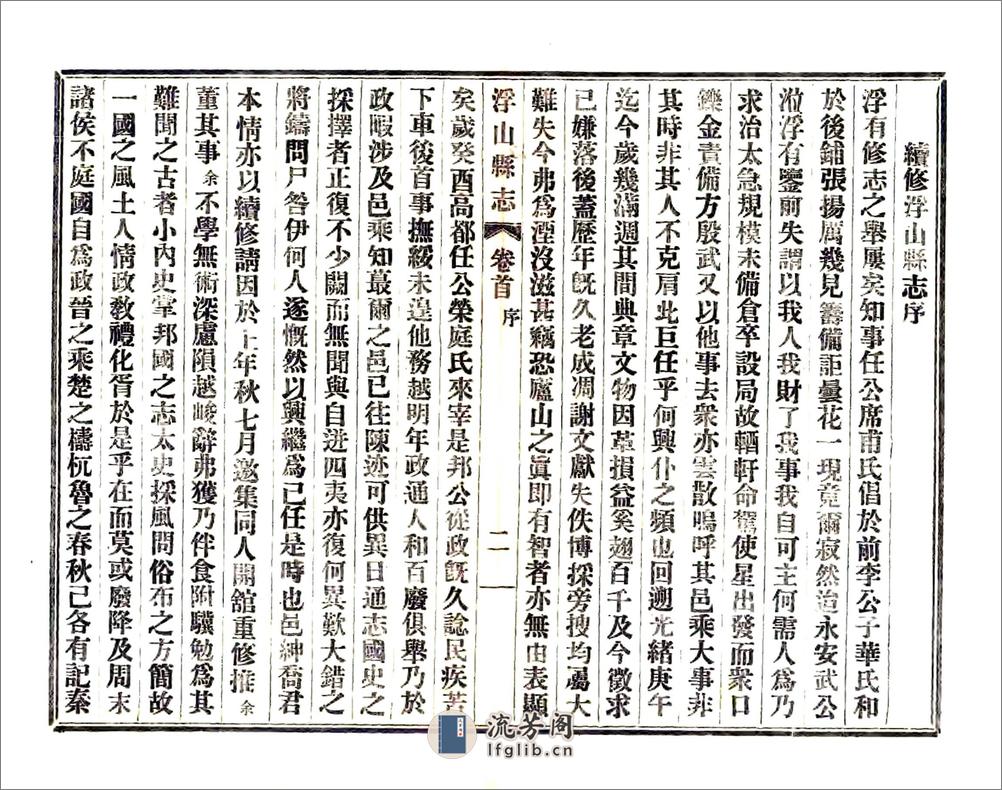 續修浮山縣志序
浮有修志之舉屢矣知事任公席甫氏倡於前李公子華氏和
於後鋪張揚厲幾見籌備詎曇花一現竟爾寂然迨永安武公
涖浮有鑒前失謂以我人我財了我事我自可主何需人為乃
求治太急規模未備倉卒設局故輶軒命駕使星出發而衆口
鑠金責備方殷武又以他事去衆亦雲散嗚呼其邑乘大事非
其時非其人不克肩此巨任乎何興仆之頻也回遡光緒庚午
迄今歲幾滿週其間典章文物因革損益奚翅百千及今徵求
已嫌落後蓋歷年旣久老成凋謝文獻失佚博採旁搜均屬大
難失今弗爲湮沒滋甚竊恐廬山之眞即有智者亦無由表顯
浮山縣志 卷首 序 二
矣歲癸酉高都任公榮庭氏來宰是邦公從政旣久諗民疾苦
下車後首事撫綏未遑他務越明年政通人和百廢俱舉乃於
政暇涉及邑乘知蕞爾之邑已往陳迹可供異日通志國史之
採擇者正復不少闕而無聞與自迸四夷亦復何異歎大錯之
將鑄問尸咎伊何人遂慨然以興繼爲已任是時也邑紳喬君
本情亦以續修請因於上年秋七月邀集同人開舘重修推余
董其事余不學無術深慮隕越峻辭弗獲乃伴食附驥勉爲其
難聞之古者小內史掌邦國之志太史採風問俗布之方簡故
一國之風土人情政敎禮化胥於是乎在而莫或廢降及周末
諸侯不庭國自爲政晉之乘楚之檮杌魯之春秋已各有記秦
流芳阁
lfglib.cn